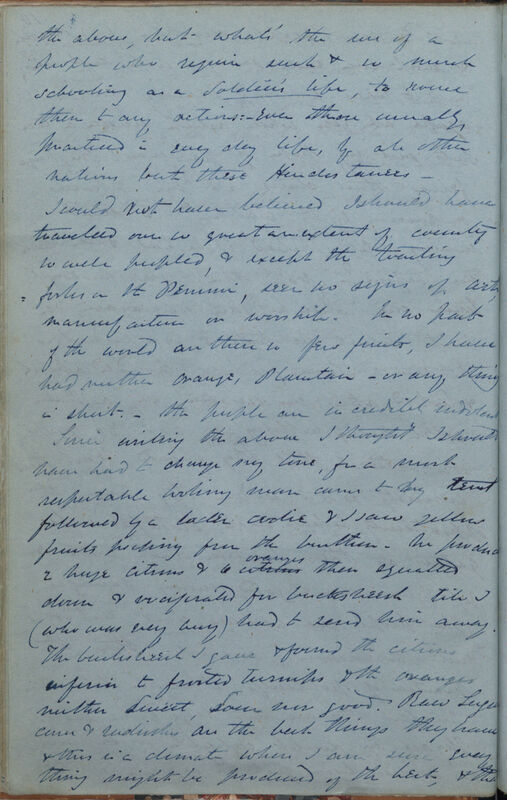 the above, but what's the use of a
people who require such & so much
schooling as a soldier's life, to rouse
them to any actions:- Even those usually
practised in every day life, by all other
nations but these Hindostanees -
I would not have believed I should have
travelled over so great an extent of country
so well peopled, & except the
in the, seen no signs of arts,
manufacture or worship. In no part
of the world are there so few fruits, I have
had neither orange, Plantain - or any thing
in short. - the people are incredibly indolent
Since writing the above I thought I should
have had to change my tone, for a most
respectable looking man came to my tent
followed by a coolie & I saw yellow
fruits peeking from the burthen - he produced
2 huge citrons & 6 oranges then squatted
down & vociferated for bucksheesh till I
(who was very busy) had to send him away.
The bucksheesh I gave & found the citrons
inferior to frosted turnips & the oranges
neither sweet, sour nor good. Raw Sugar
cane & radishes are the best things they have
& this is a climate where I am sure every
thing might be produced of the best, & the